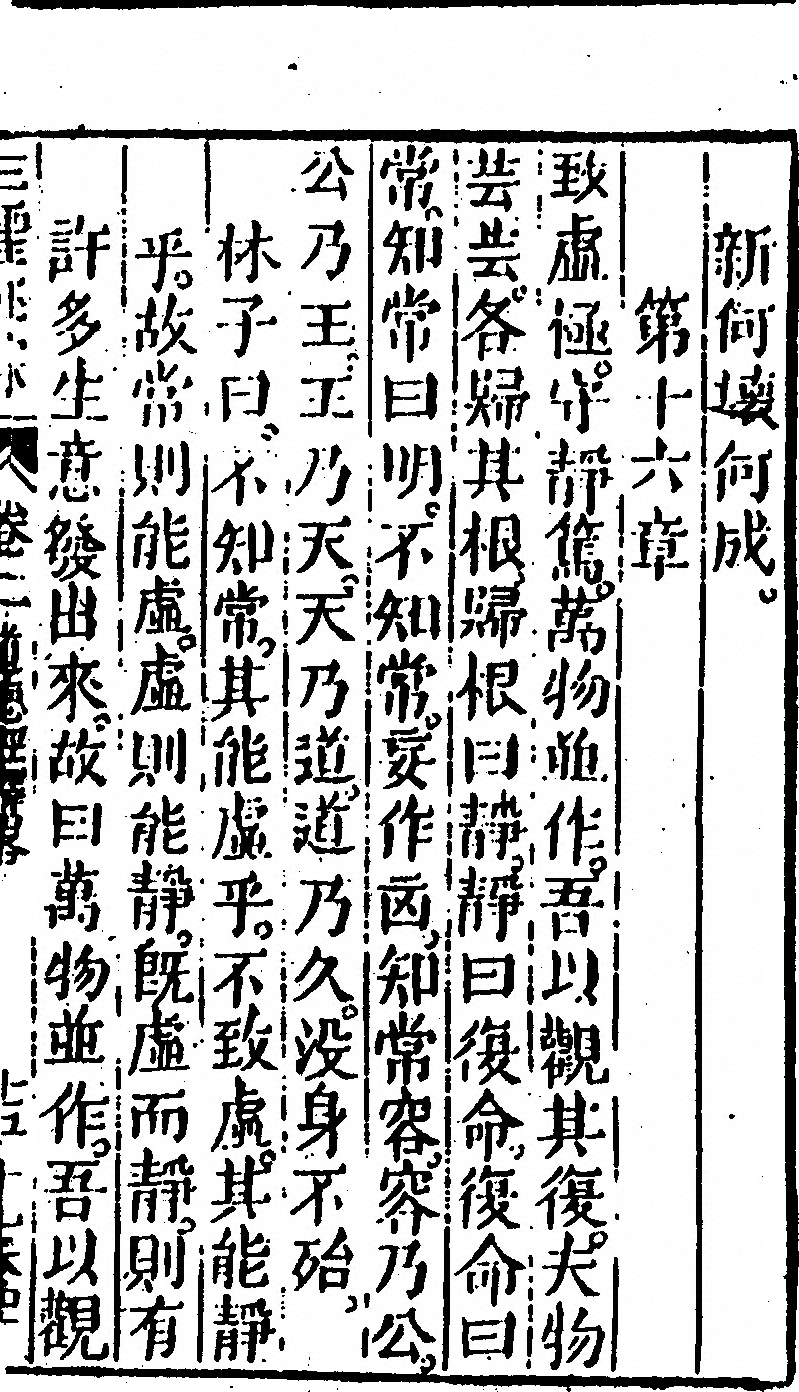 新何壞何成。
第十六章
致虛極。守靜篤。萬物並作。吾以觀其復。夫物
芸芸。各歸其根。歸根曰靜。靜曰復命。復命曰
常。知常曰明。不知常。妄作凶。知常容。容乃公。
公乃王。王乃天。天乃道。道乃久。没身不殆。
林子曰。不知常。其能虛乎。不致虛。其能靜
乎。故常則能虛。虛則能靜。旣虛而靜。則有
許多生意發出來。故曰萬物並作。吾以觀
卷二 道德經釋畧